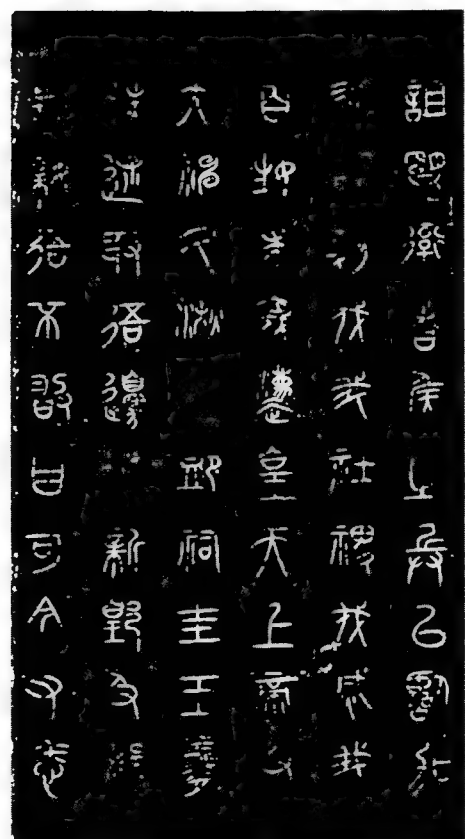 詛盟率者侯之兵㠯臨加
我剗伐我社稷伐烕我
百姓求蔑灋皇天上帝及
大沈氒湫卹祠圭玉羲
牲逑取俉邊新郢及
長敘俉不敢曰可今又悉